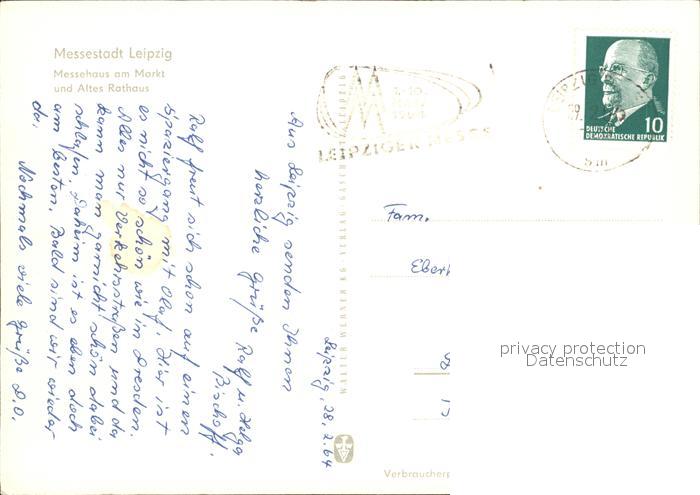 Messestadt Leipzig
Messehaus am Markt
und Altes Rathaus
Leipzig, 28.2.64
Aus Leipzig senden Ihnen
herzliche Grüße Ralf u. Helga
Bischoff.
Ralf freut sich schon auf einen
Spaziergang mit Olaf. Hier ist
es nicht so schön wie in Dresden.
Alles nur Verkehrsstraßen und da
kann man garnicht schön dabei
schlafen. Daheim ist es eben doch
am besten. Bald sind wir wieder
da.
Nochmals viele Grüße D.O.
LEIPZIGER MESSE
DEUTSCHE
DEMOKRATISCHE REPUBLIK
10
Fam.
Eber
WALTER WERNER KG · VERLAG
Verbraucherp
privacy protection
Datenschutz